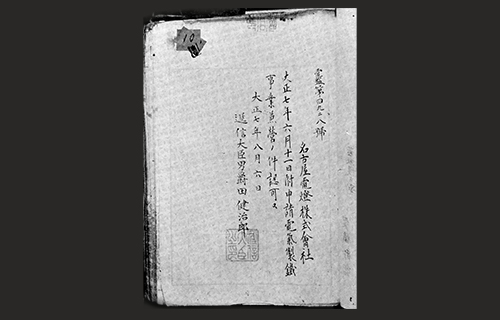 10
電第四九二八號
名古屋電燈株式會社
大正七年六月十一日附申請電氣製鐵
事業兼營ノ件認可ス
大正七年八月六日
逓信大臣男爵田健治郎